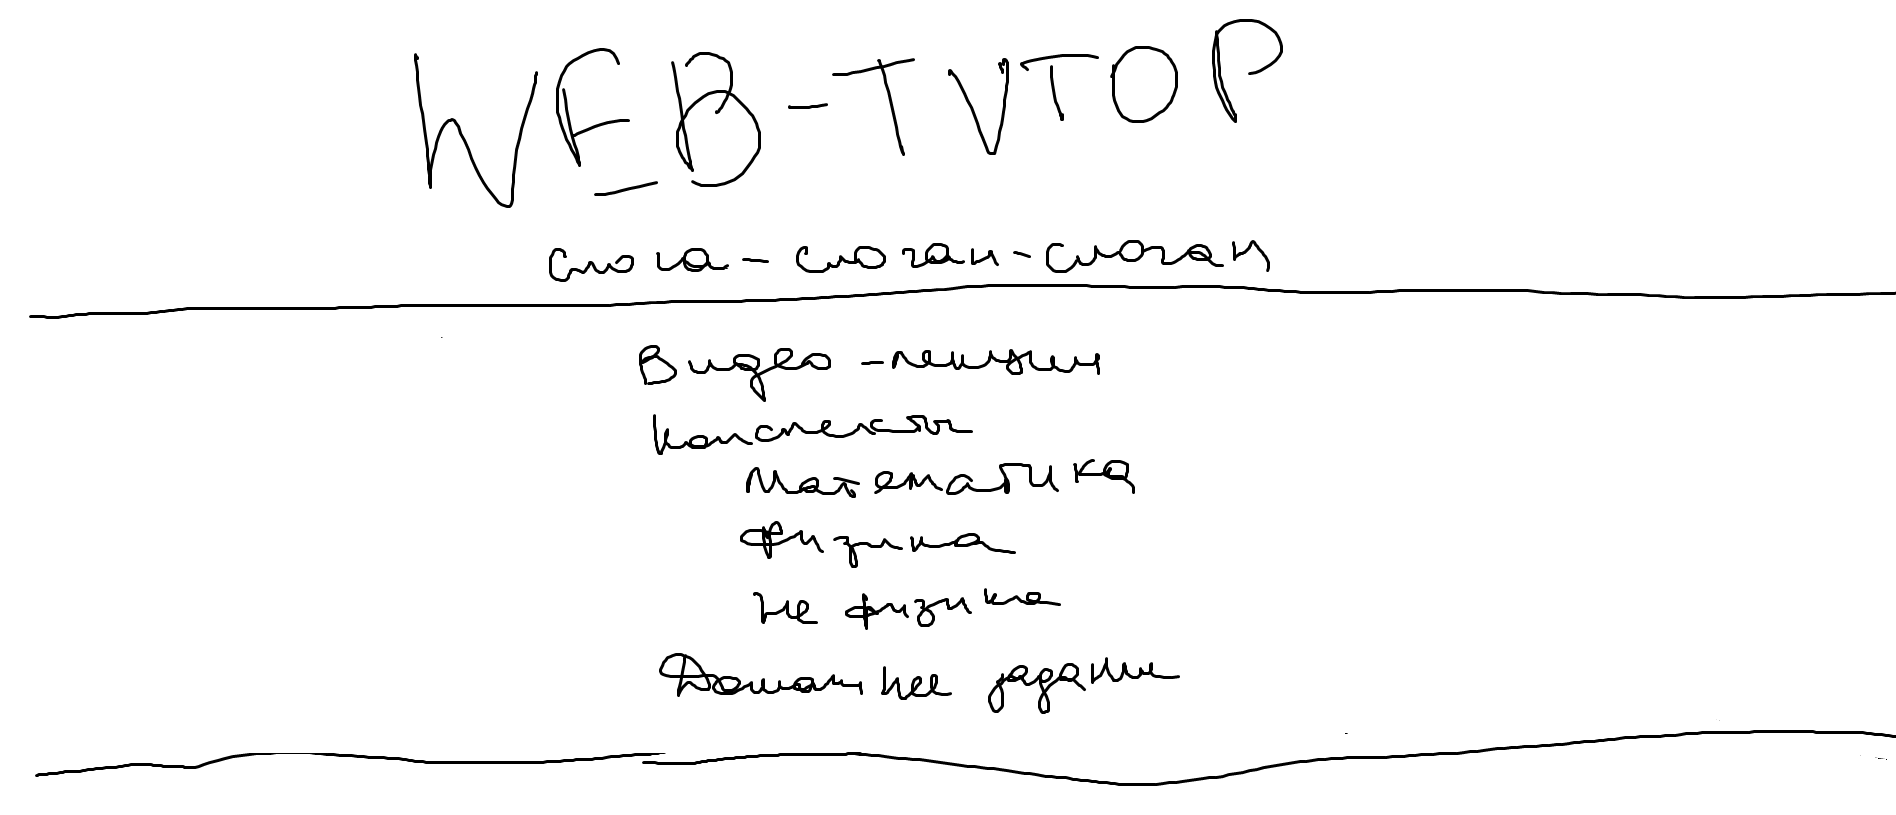 WEB-TVTOP
слога-слоган-слоган
Видео-лекции
Конспекты
Математика
Физика
Не физика
Домашнее задание